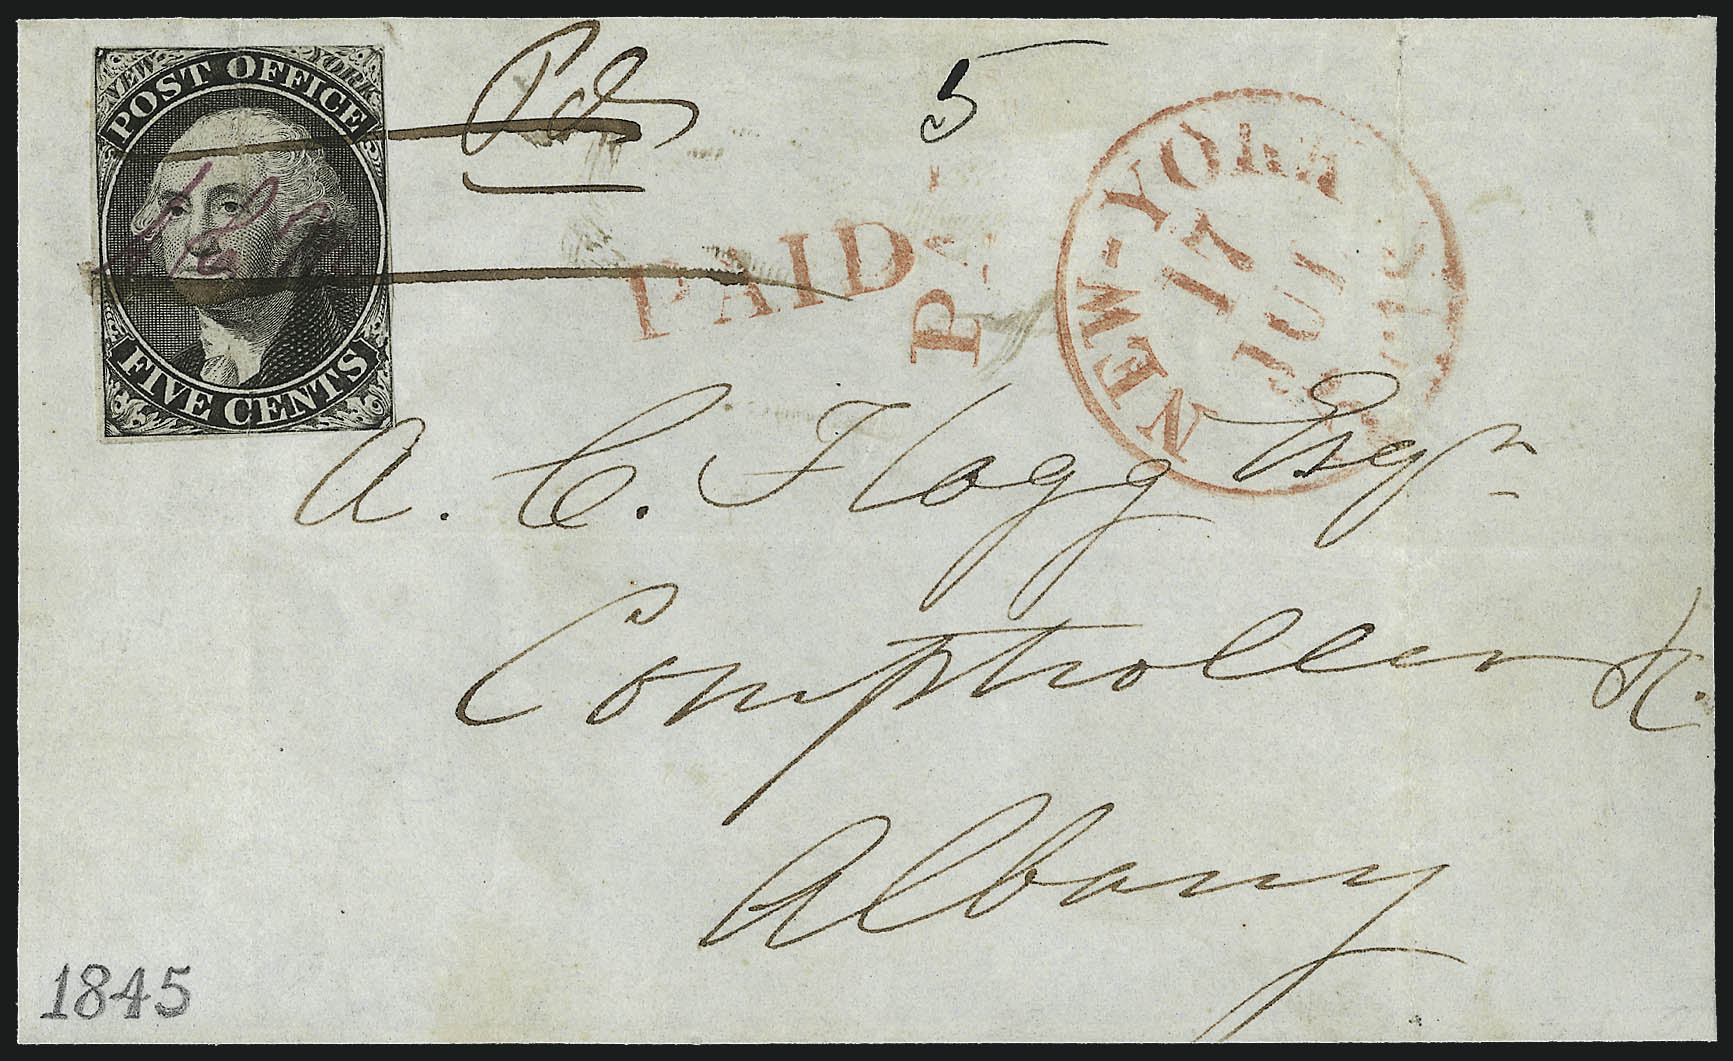 NEW YORK
POST OFFICE
FIVE CENTS
Pd
5
PAID
PA
NEW-YORK
17
JUL
A. C. Flagg Esqr
Comptroller &c.
Albany
1845